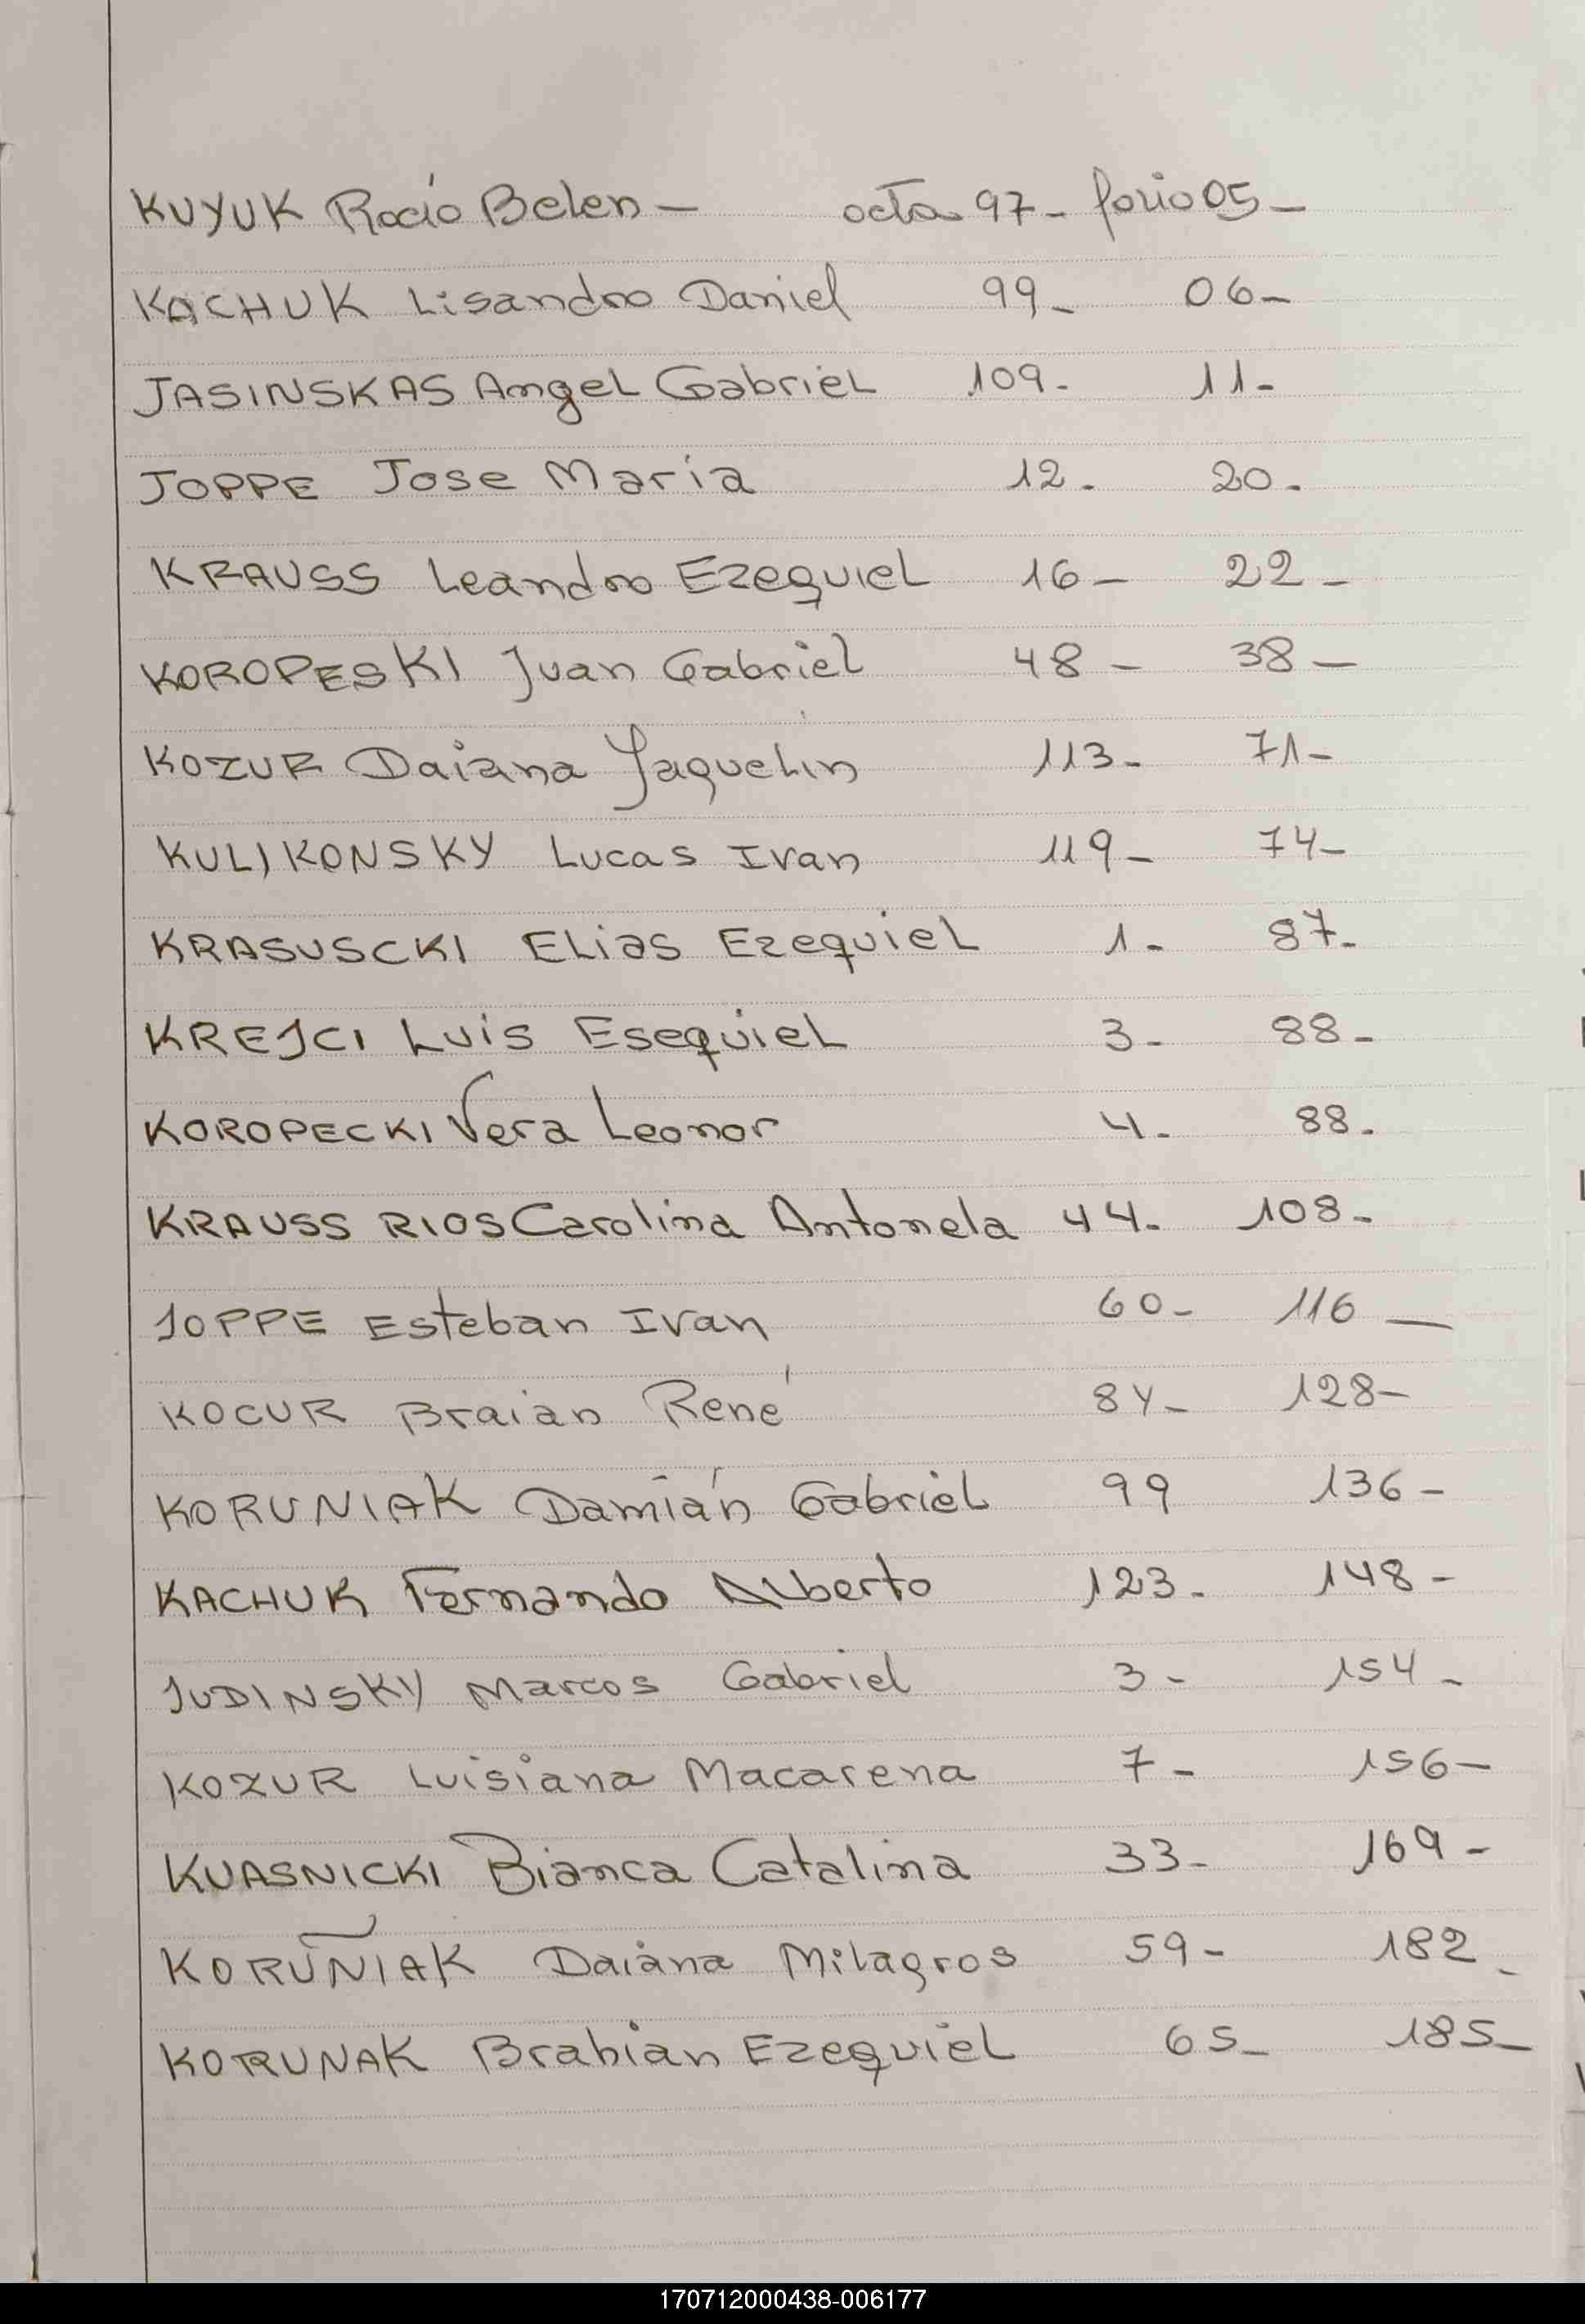 KUYUK Rocío Belen - acta 97 - folio 05 -
KACHUK Lisandro Daniel 99 - 06 -
JASINSKAS Angel Gabriel 109 - 11 -
JOPPE Jose Maria 12 - 20 -
KRAUSS Leandro Ezequiel 16 - 22 -
KOROPESKI Juan Gabriel 48 - 38 -
KOZUR Daiana Jaquelin 113 - 71 -
KULIKONSKY Lucas Ivan 119 - 74 -
KRASUSCKI Elias Ezequiel 1 - 87 -
KREJCI Luis Esequiel 3 - 88 -
KOROPECKI Vera Leonor 4 - 88 -
KRAUSS RIOS Carolina Antonela 44 - 108 -
JOPPE Esteban Ivan 60 - 116 -
KOCUR Braian René 84 - 128 -
KORUNIAK Damián Gabriel 99 136 -
KACHUK Fernando Alberto 123 - 148 -
JUDINSKY Marcos Gabriel 3 - 154 -
KOZUR Luisiana Macarena 7 - 156 -
KUASNICKI Bianca Catalina 33 - 169 -
KORUÑIAK Daiana Milagros 59 - 182 -
KORUNAK Brahian Ezequiel 65 - 185 -
170712000438-006177